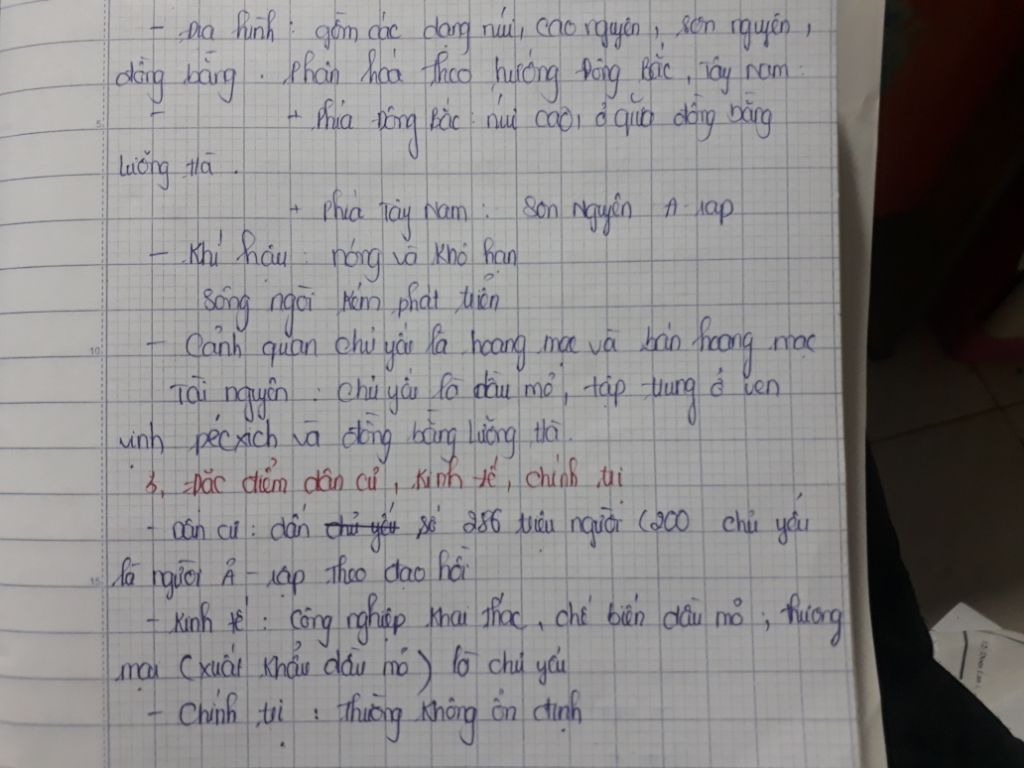 - Địa hình : gồm các dạng núi, cao nguyên, sơn nguyên,
đồng bằng . Phân hoá theo hướng Đông Bắc, Tây Nam.
- + Phía Đông Bắc : núi cao, ở giữa đồng bằng
Lưỡng Hà .
+ Phía Tây Nam : Sơn nguyên A-rap
- Khí hậu : nóng và khô hạn
Sông ngòi kém phát triển
- Cảnh quan chủ yếu là hoang mạc và bán hoang mạc
Tài nguyên : chủ yếu là dầu mỏ, tập trung ở ven
vịnh pécxich và đồng bằng Lưỡng Hà.
3, Đặc điểm dân cư, kinh tế, chính trị
- Dân cư : dân chủ yếu số 286 triệu người (200 chủ yếu
là người Ả - rập theo đạo hồi
- Kinh tế : Công nghiệp khai thác, chế biến dầu mỏ ; thương
mại (xuất khẩu dầu mỏ) là chủ yếu
- Chính trị : Thường không ổn định